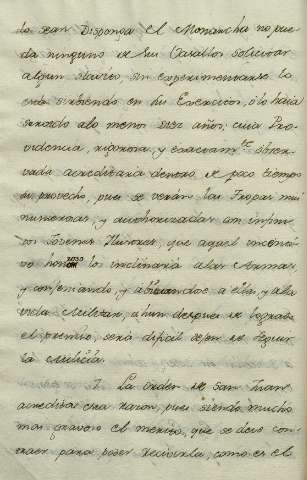 do sean Disponga el Monarcha no pue
da ninguno de sus Vasallos solicitar
algun sin experimentarse
está sirbiendo en sus Exercitos, ó lo haia
servido alo menos diez años; cuia Pro
videncia, rigorosa, y exactam.te obser
vada acreditaria dentro de poco tiempo
su provecho, pues se verán las Tropas mui
numerosas, y authorizadas con infini
tos Jovenes Ilustres, que aquel incenti
vo honroso los inclinaria alas Armas,
y comenzando, y abituandose á ella, y ala
vida Militar, ahun despues de lograr
el premio, será dificil dejen de seguir
la Milicia.
7. La orden de San Juan
acredita esta razon, pues siendo mucho
mas gravoso el merito, que se deve con
traer para poder recivirla, como es el